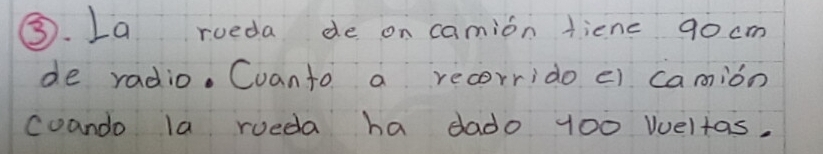 ③. La rueda de on camión tiene 90 cm
de radio. Cuanto a recorrido el camión
cuando la rueda ha dado 400 vueltas.